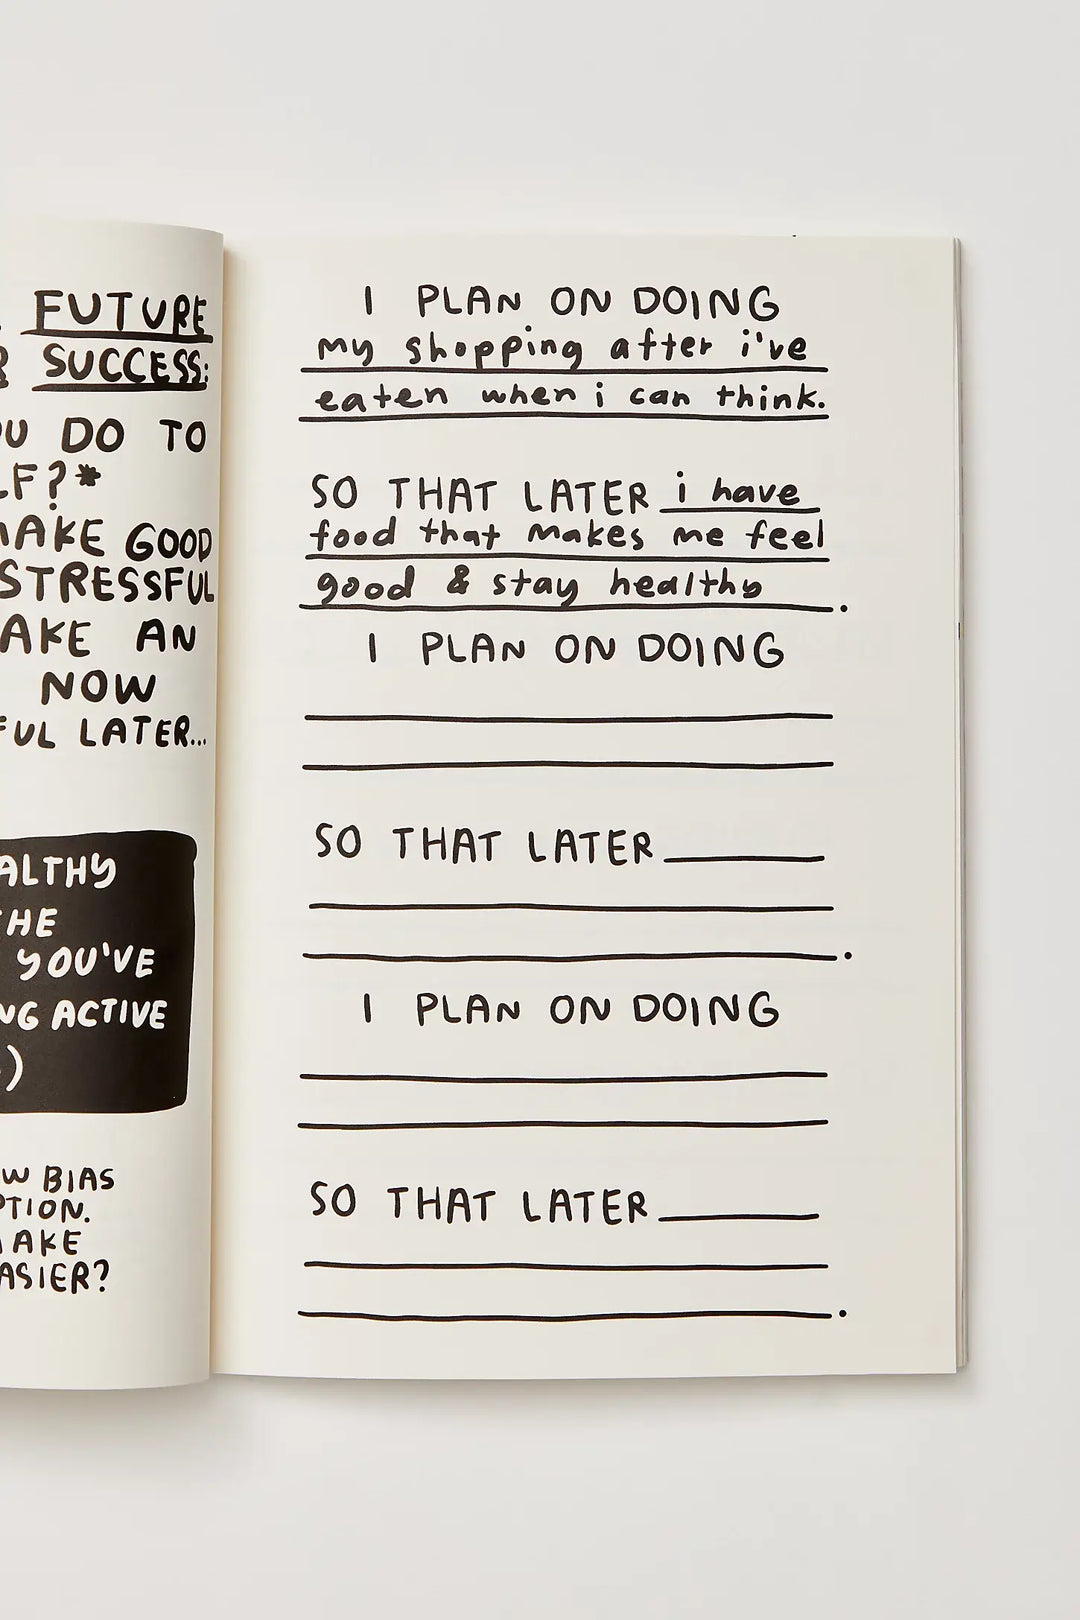 FUTURE
SUCCESS:
DO TO
MAKE GOOD
STRESSFUL
AN
NOW
LATER...
YOU'VE
ACTIVE
BIAS
I PLAN ON DOING
my shopping after i've
eaten when i can think.
SO THAT LATER i have
food that makes me feel
good & stay healthy.
I PLAN ON DOING
SO THAT LATER
I PLAN ON DOING
SO THAT LATER